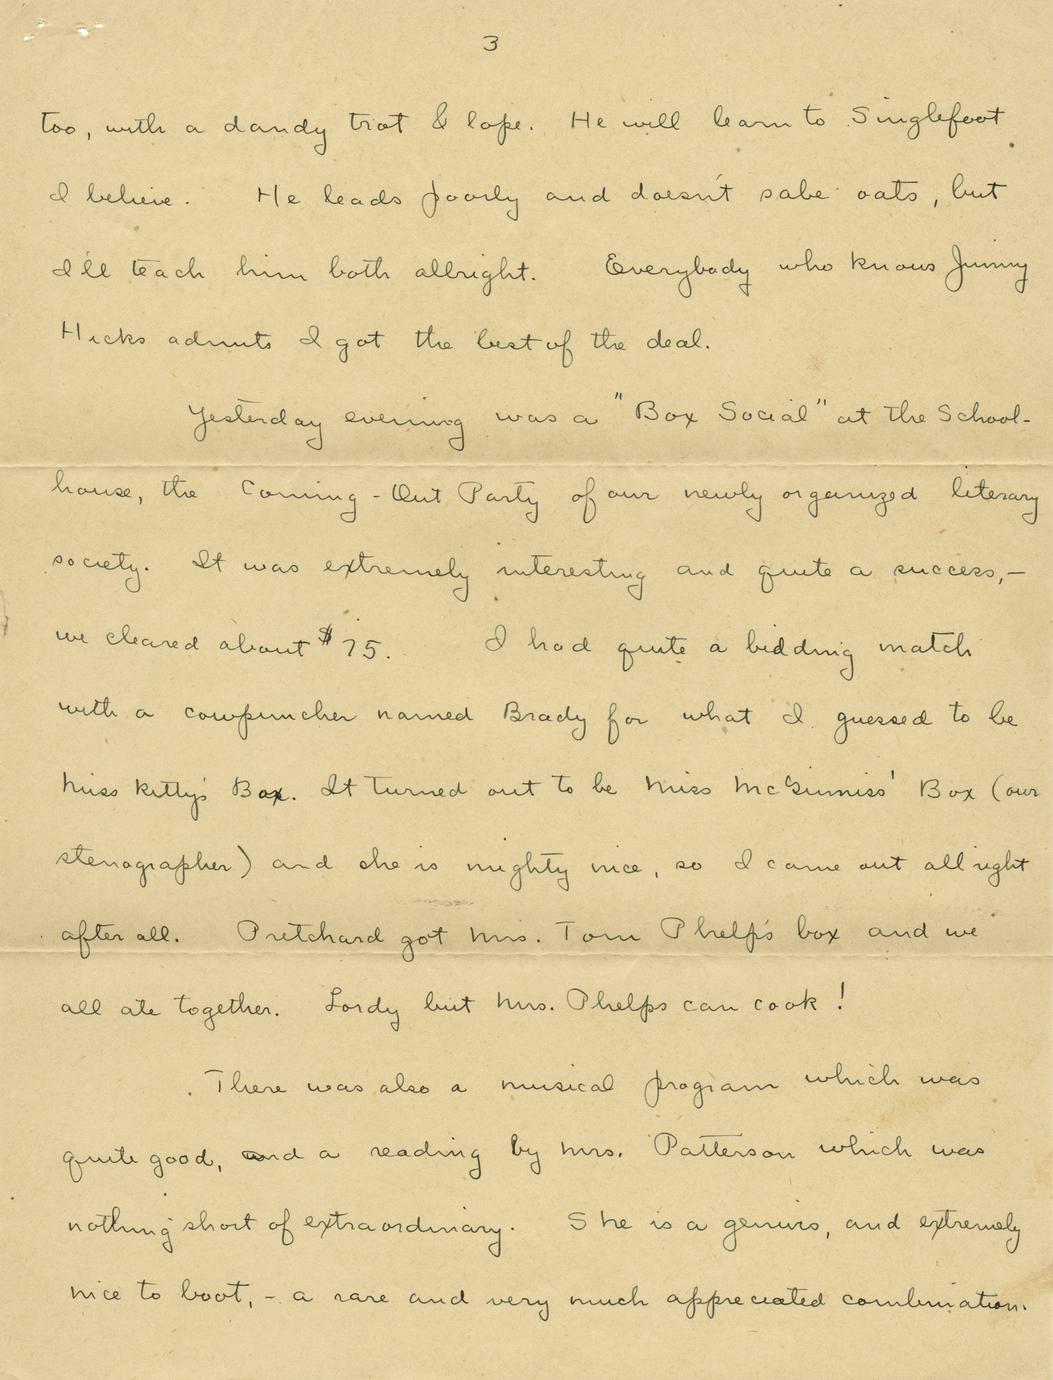 3
too, with a dandy trot & lope. He will learn to Singlefoot
I believe. He leads poorly and doesn't sabe oats, but
I'll teach him both allright. Everybody who knows Jimmy
Hicks admits I got the best of the deal.
Yesterday evening was a "Box Social" at the School-
house, the Coming-Out Party of our newly organized literary
society. It was extremely interesting and quite a success,—
we cleared about $75. I had quite a bidding match
with a cowpuncher named Brady for what I guessed to be
Miss Kitty's Box. It turned out to be Miss McGinniss' Box (our
stenographer) and she is mighty nice, so I came out all right
after all. Pritchard got Mrs. Tom Phelp's box and we
all ate together. Lordy but Mrs. Phelps can cook!
There was also a musical program which was
quite good, and a reading by Mrs. Patterson which was
nothing short of extraordinary. She is a genius, and extremely
nice to boot, - a rare and very much appreciated combination.